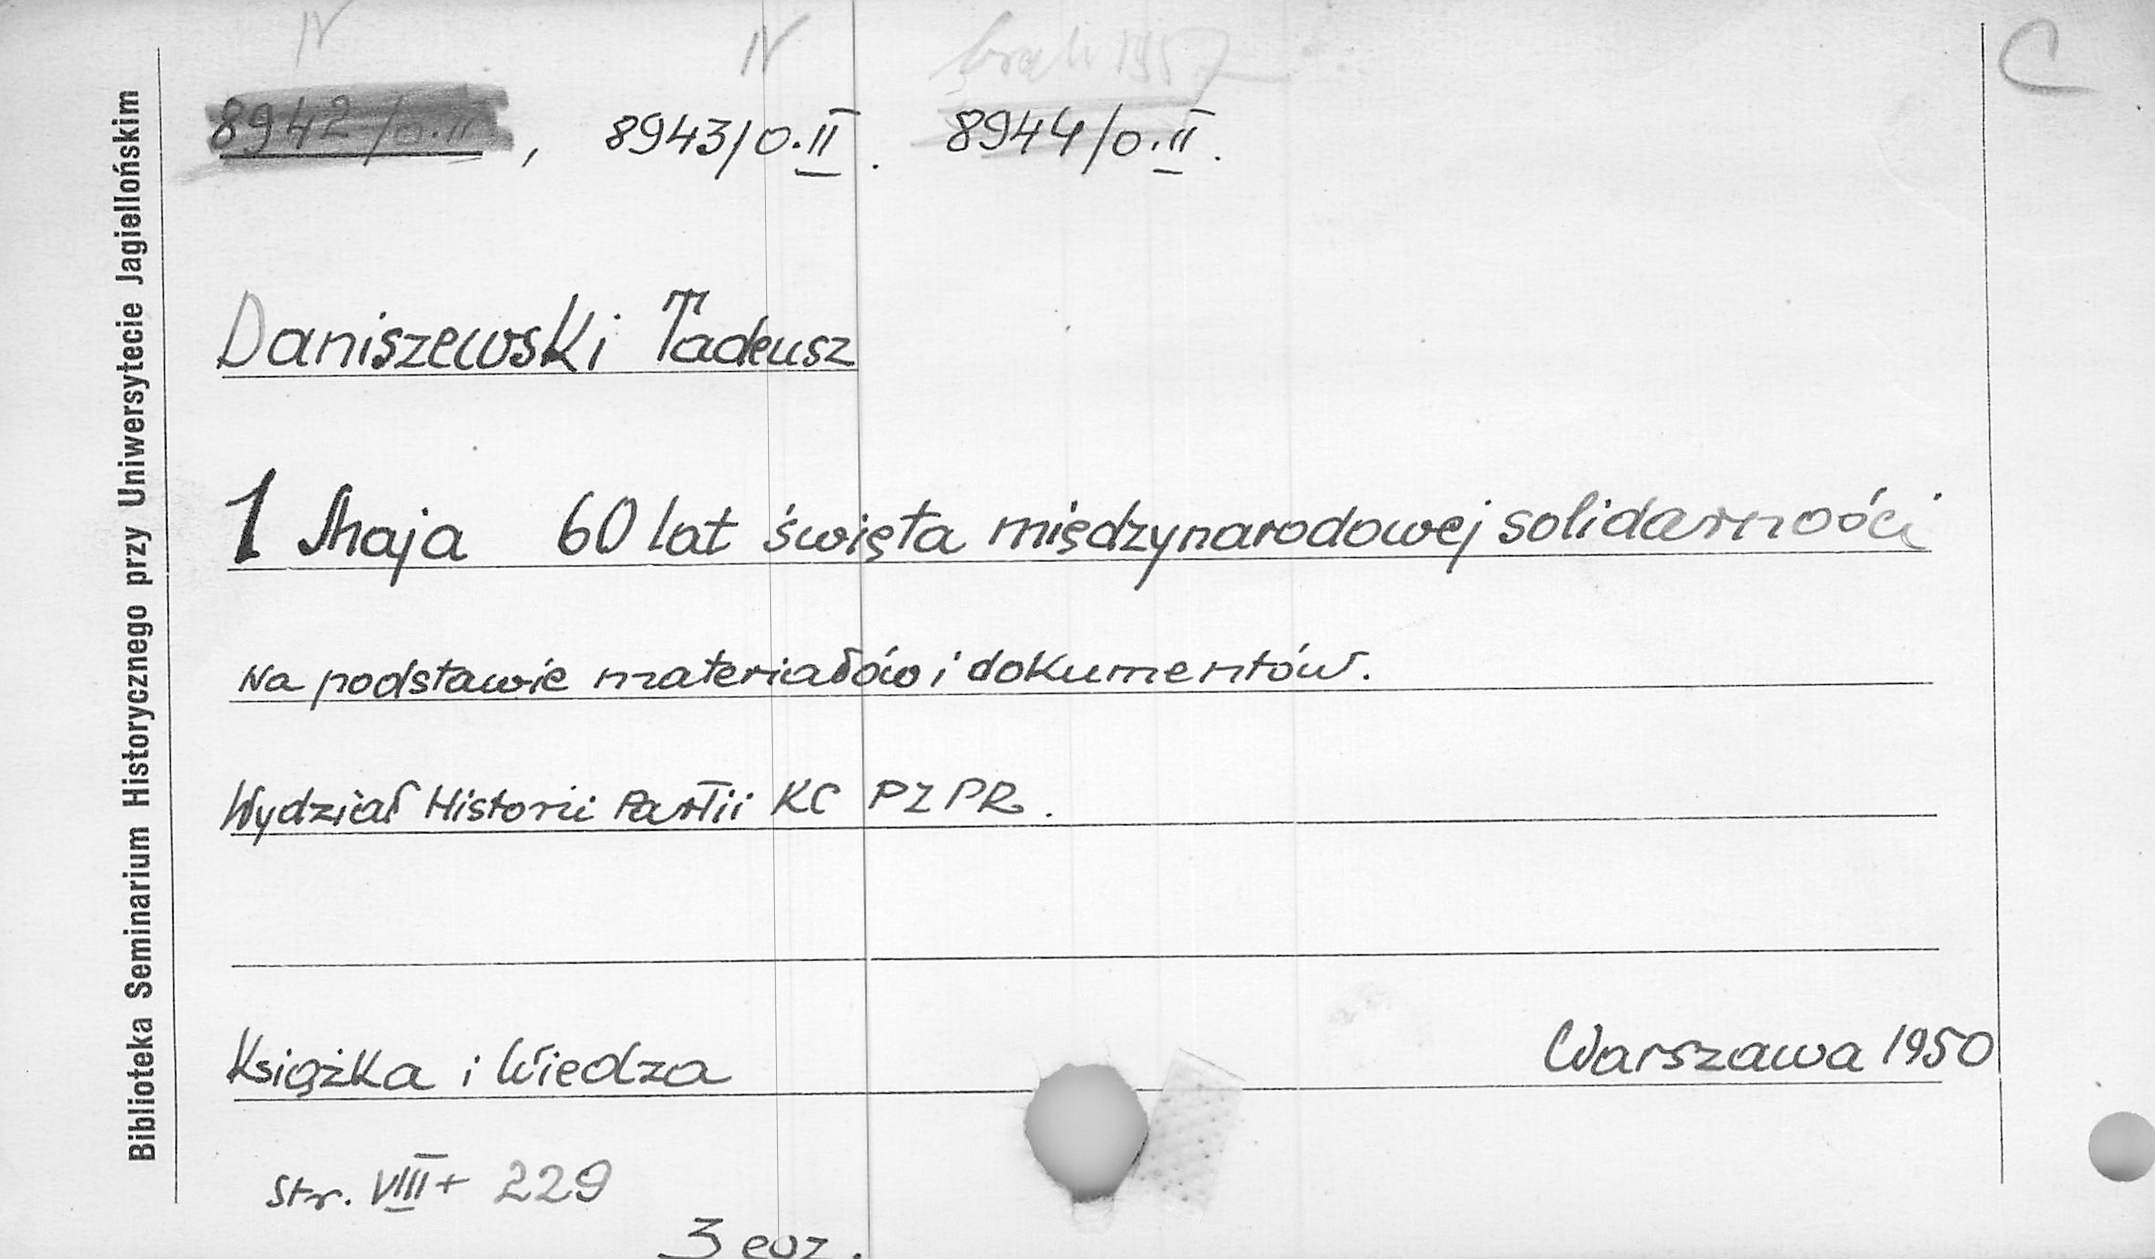 IV IV brak 1957 C
8942/O.II, 8943/O.II. 8944/O.II.
Daniszewski Tadeusz
1 Maja 60 lat święta międzynarodowej solidarności
Na podstawie materiałów i dokumentów.
Wydział Historii Partii KC PZPR.
Książka i Wiedza Warszawa 1950
Str. VIII + 229
3 egz.
Biblioteka Seminarium Historycznego przy Uniwersytecie Jagiellońskim